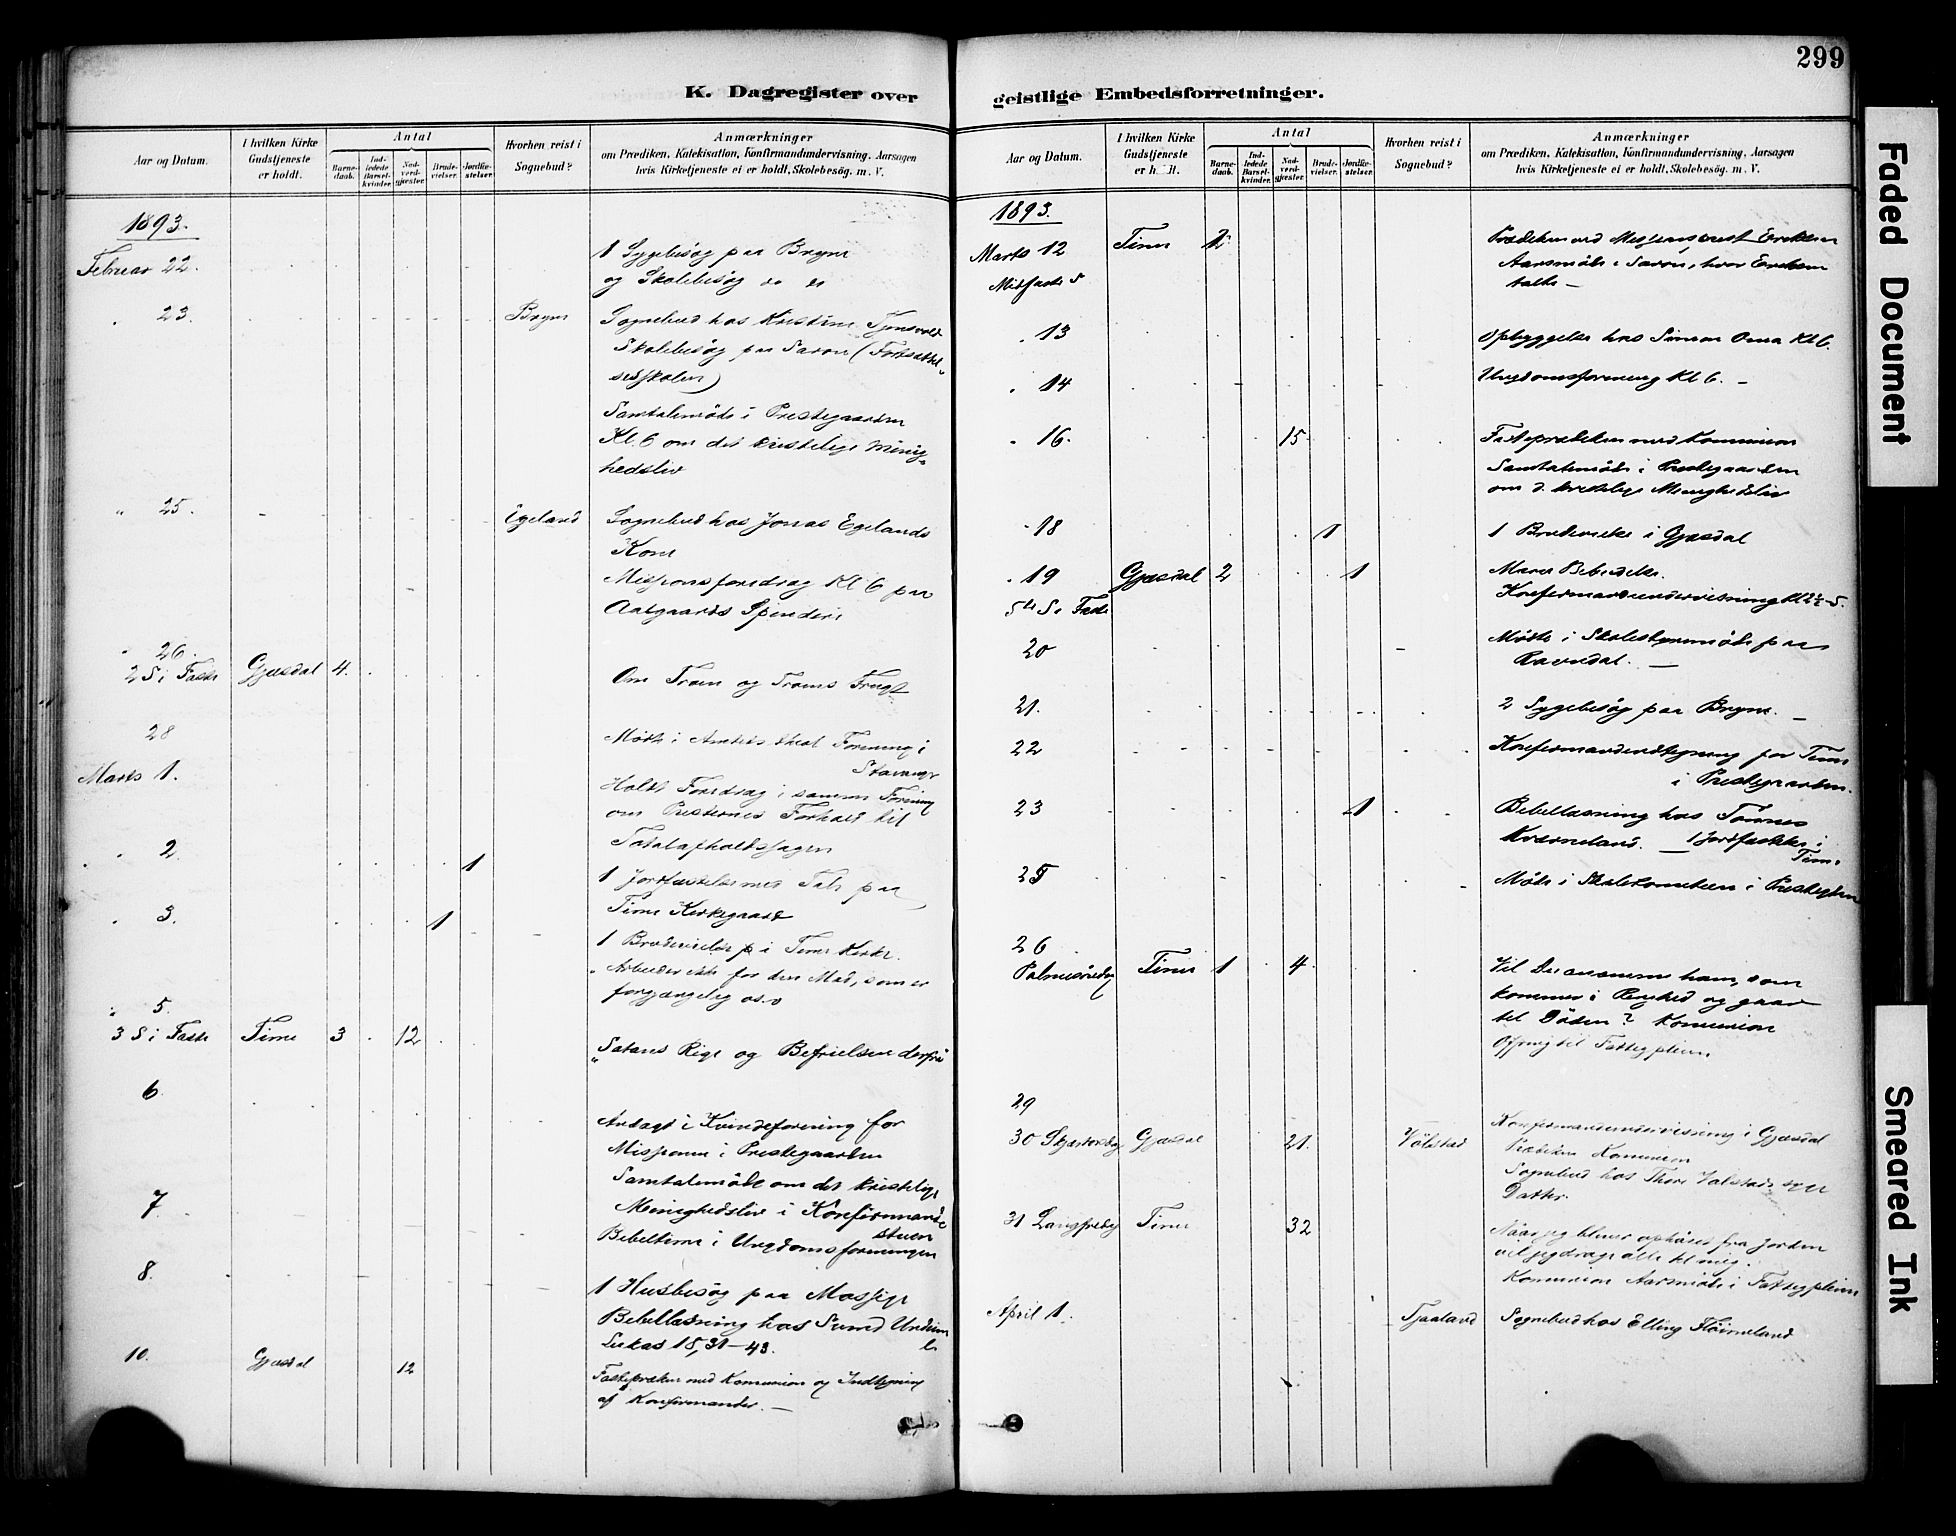 299
K. Dagregister over
Aar og Datum.
I hvilken Kirke Gudstjeneste er holdt.
Antal
Barnedaab.
Indledede Barselkvinder.
Nadverdgjæster.
Brudevielser.
Jordfæstelser.
Hvorhen reist i Sognebud?
Anmærkninger
om Prædiken, Katekisation, Konfirmandundervisning, Aarsagen
hvis Kirketjeneste ei er holdt, Skolebesøg. m. V.
1893.
Februar 22.
1 Sygebesøg paa Bryne
og Skolebesøg
23.
Bryne
Sognebud hos Kristine
Skolebesøg paa Saron (Fortsættel-
sesskolen)
Samtalemøde i Prestegaarden
Kl. 6 om det kristelige Menig-
hedsliv
" 25.
Egeland
Sognebud hos Jonas Egelands
Kone
Missionsforedrag Kl 6 paa
Aalgaards Spinderi
" 26.
2 S i Faste Gjæsdal 4.
Om Troen og Troens Frugt
28
Møde i Forening i
Stavanger
Marts 1.
Holdt Foredrag i samme Forening
om Presternes Forhold til
Totalafholdssagen
" 2
1
1 Tale paa
Time Kirkegaard
" 3.
1
1 i Time Kirke.
" 5.
"Arbeider ikke for den Mad, som er
forgjængelig osv
3 S i Faste Time 3 12
"Satans Rige og Befrielsen derfra
6
Andagt i Kvindeforening for
Missionen i Prestegaarden
7
Samtalemøde om det kristelige
Menighedsliv i Konfirmand-
stuen
Bibeltime i Ungdomsforeningen
8.
1 Husbesøg paa
Bibellæsning hos
Lukas 18,31-43.
10. Gjæsdal 12
Fastepræken med Komunion og Indtegning
af Konfirmander. -
geistlige Embedsforretninger.
Aar og Datum.
I hvilken Kirke Gudstjeneste er h t.
Antal
Barnedaab.
Indledede Barselkvinder.
Nadverdgjæster.
Brudevielser.
Jordfæstelser.
Hvorhen reist i Sognebud?
Anmærkninger
om Prædiken, Katekisation, Konfirmandundervisning, Aarsagen
hvis Kirketjeneste ei er holdt, Skolebesøg. m. V.
1893.
Marts 12 Time 2
Midfaste S
Prædiken ved
Aarsmøde i Saron, hvor
talte -
" 13
Opbyggelse hos Simon Oma Kl 6.
" 14
Ungdomsforening Kl 6. -
" 16. 15
Fasteprædiken med Komunion
Samtalemøde i Prestegaarden
om d. kristelige Menighedsliv
" 18 1
1 i Gjæsdal
" 19 Gjæsdal 2 1
5te S. i Faste
Marie Bebudelse.
Konfirmandundervisning Kl 2½-5.
20
Møde i paa
Ravndal. -
21.
2 Sygebesøg paa Bryne. -
22
for Time
i Prestegaarden.
23 1
Bibellæsning hos Tønnes
Kverneland. - 1 i
Time
25
Møde i Skolekomiteen i
26
Palmesøndag Time 1 4
Vil Du ham, som
kommer i og gaar
til Døden? Komunion
Offring til Fattigpleien
29
Konfirmandundervisning i Gjæsdal
30 Skjærtorsdag Gjæsdal 21. Vølstad
Prædiken Komunion
Sognebud hos Thore syge
Datter.
31 Langfredag Time 32
Naar jeg bliver ophøiet fra Jorden
vil jeg drage alle til mig.
Komunion Aarsmøde i Fattigpleien
April 1.
Tjaaland
Sognebud hos Elling
Faded Document
Smeared Ink